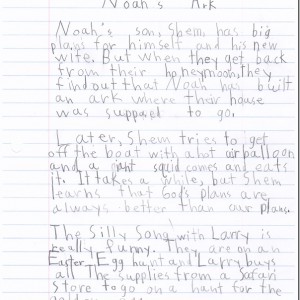 Noah's Ark
Noah's son, Shem, has big
plans for himself and his new
wife. But when they get back
from their honeymoon, they
find out that Noah has built
an ark where their house
was suppared to go.
Later, Shem tries to get
off the boat with a hot air balloon
and a giant squid comes and eats
it. It takes a while, but Shem
learns that God's plans are
always better than our plans.
The Silly Song with Larry is
really funny. They are on an
Easter Egg hunt and Larry buys
all The supplies from a Safari
Store to go on a hunt for the